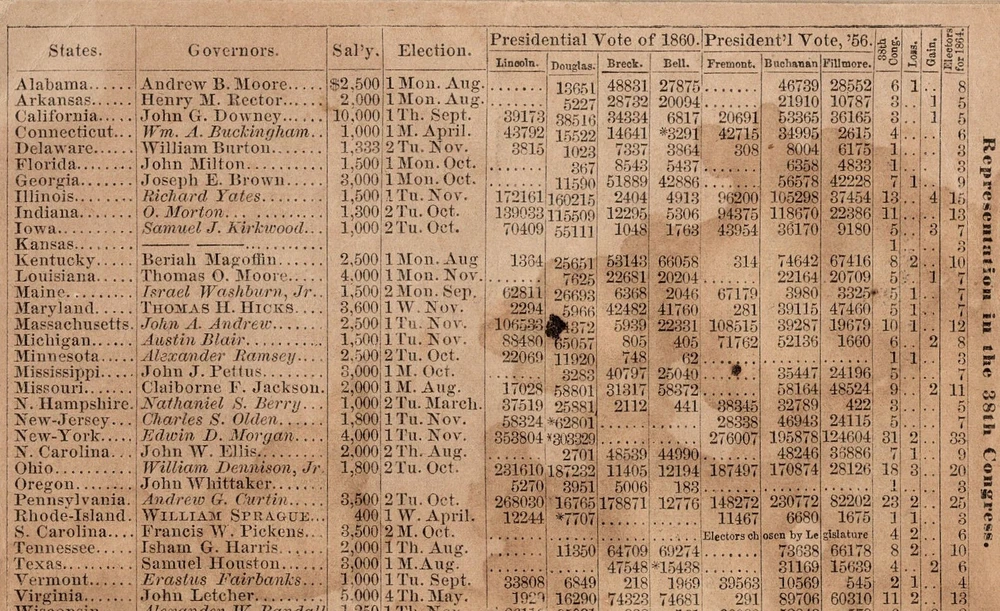 States. Governors. Sal'y. Election. Presidential Vote of 1860. President'l Vote, '56. 38th Cong. Loss. Gain. Electors for 1864.
Lincoln. Douglas. Breck. Bell. Fremont. Buchanan Fillmore.
Alabama...... Andrew B. Moore..... $2,500 1 Mon. Aug. ....... 13651 48831 27875 ....... 46739 28552 6 1 .. 8
Arkansas...... Henry M. Rector...... 2,000 1 Mon. Aug. ....... 5227 28732 20094 ....... 21910 10787 3 .. 1 5
California..... John G. Downey..... 10,000 1 Th. Sept. 39173 38516 34334 6817 20691 53365 36165 3 .. 1 5
Connecticut... Wm. A. Buckingham.. 1,000 1 M. April. 43792 15522 14641 *3291 42715 34995 2615 4 .. .. 6
Delaware...... William Burton...... 1,333 2 Tu. Nov. 3815 1023 7337 3864 308 8004 6175 1 .. .. 3
Florida....... John Milton......... 1,500 1 Mon. Oct. ....... 367 8543 5437 ....... 6358 4833 1 .. .. 3
Georgia....... Joseph E. Brown..... 3,000 1 Mon. Oct. ....... 11590 51889 42886 ....... 56578 42228 7 1 .. 9
Illinois....... Richard Yates....... 1,500 1 Tu. Nov. 172161 160215 2404 4913 96200 105298 37454 13 .. 4 15
Indiana....... O. Morton.......... 1,300 2 Tu. Oct. 139033 115509 12295 5306 94375 118670 22386 11 .. .. 13
Iowa......... Samuel J. Kirkwood... 1,000 2 Tu. Oct. 70409 55111 1048 1763 43954 36170 9180 5 .. 3 7
Kansas........ —— ——.......... 1 .. .. 3
Kentucky..... Beriah Magoffin..... 2,500 1 Mon. Aug 1364 25651 53143 66058 314 74642 67416 8 2 .. 10
Louisiana..... Thomas O. Moore.... 4,000 1 Mon. Nov. ....... 7625 22681 20204 ....... 22164 20709 5 .. 1 7
Maine........ Israel Washburn, Jr.. 1,500 2 Mon. Sep. 62811 26693 6368 2046 67179 3980 3325 5 1 .. 7
Maryland..... THOMAS H. HICKS.... 3,600 1 W. Nov. 2294 5966 42482 41760 281 39115 47460 5 1 .. 7
Massachusetts. John A. Andrew..... 2,500 1 Tu. Nov. 106533 5939 22331 108515 39287 19679 10 1 .. 12
Michigan..... Austin Blair........ 1,500 1 Tu. Nov. 88480 65057 805 405 71762 52136 1660 6 .. 2 8
Minnesota.... Alexander Ramsey... 2,500 2 Tu. Oct. 22069 11920 748 62 ....... 1 1 .. 3
Mississippi.... John J. Pettus....... 3,000 1 M. Oct. ....... 3283 40797 25040 ....... 35447 24196 5 .. .. 7
Missouri...... Claiborne F. Jackson. 2,000 1 M. Aug. 17028 58801 31317 58372 ....... 58164 48524 9 .. 2 11
N. Hampshire. Nathaniel S. Berry... 1,000 2 Tu. March. 37519 25881 2112 441 38345 32789 422 3 .. .. 5
New-Jersey... Charles S. Olden.... 1,800 1 Tu. Nov. 58324 *62801 ....... 28338 46943 24115 5 .. .. 7
New-York.... Edwin D. Morgan... 4,000 1 Tu. Nov. 353804 *303329 ....... 276007 195878 124604 31 2 .. 33
N. Carolina... John W. Ellis....... 2,000 2 Th. Aug. ....... 2701 48539 44990 ....... 48246 36886 7 1 .. 9
Ohio......... William Dennison, Jr. 1,800 2 Tu. Oct. 231610 187232 11405 12194 187497 170874 28126 18 3 .. 20
Oregon....... John Whittaker...... 5270 3951 5006 183 ....... 1 .. .. 3
Pennsylvania. Andrew G. Curtin... 3,500 2 Tu. Oct. 268030 16765 178871 12776 148272 230772 82202 23 2 .. 25
Rhode-Island. WILLIAM SPRAGUE... 400 1 W. April. 12244 *7707 ....... 11467 6680 1675 1 1 .. 3
S. Carolina... Francis W. Pickens... 3,500 2 M. Oct. Electors chosen by Legislature 4 2 .. 6
Tennessee.... Isham G. Harris..... 2,000 1 Th. Aug. ....... 11350 64709 69274 ....... 73638 66178 8 2 .. 10
Texas......... Samuel Houston..... 3,000 1 M. Aug. ....... 47548 *15438 ....... 31169 15639 4 .. 2 6
Vermont...... Erastus Fairbanks... 1,000 1 Tu. Sept. 33808 6849 218 1969 39563 10569 545 2 1 .. 4
Virginia...... John Letcher........ 5,000 4 Th. May. 1929 16290 74323 74681 291 89706 60310 11 2 .. 13
Wisconsin Alexander W. Randall
Representation in the 38th Congress.